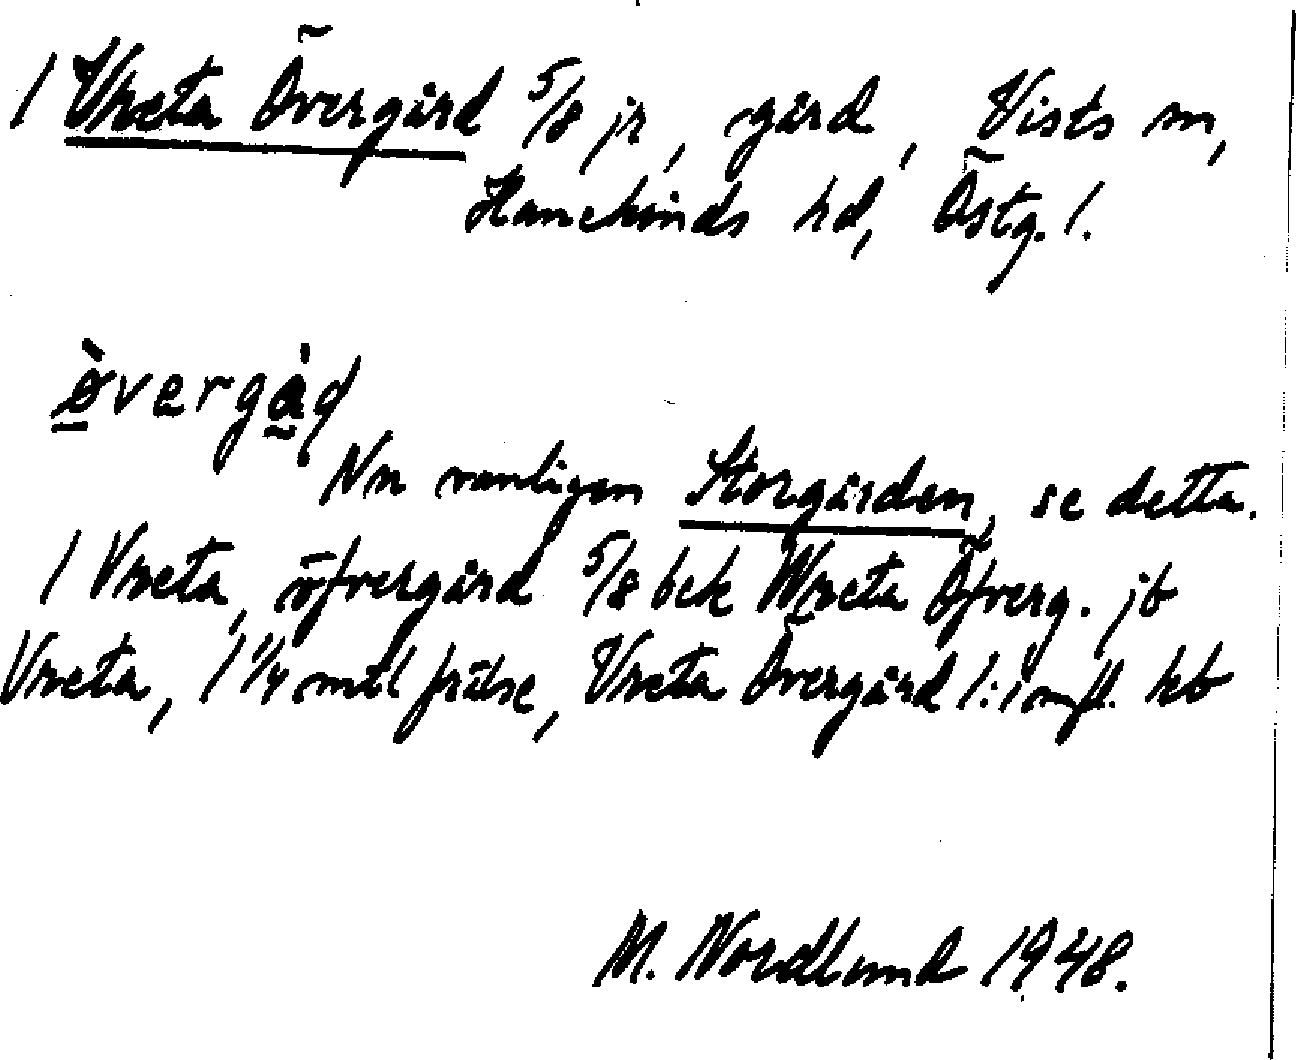 1 Vreta Övergård 5/8 jr, gård, Vists sn,
Hanekinds hd, Östg. l.
ø̀vergå̀d
Nu vanligen Storgården, se detta.
1 Vreta, öfvergård 5/8 bek Wreta Öfverg. jb
Vreta, 1 1/4 mtl frälse, Vreta Övergård 1:1 mfl. kb
M. Nordlund 1948.